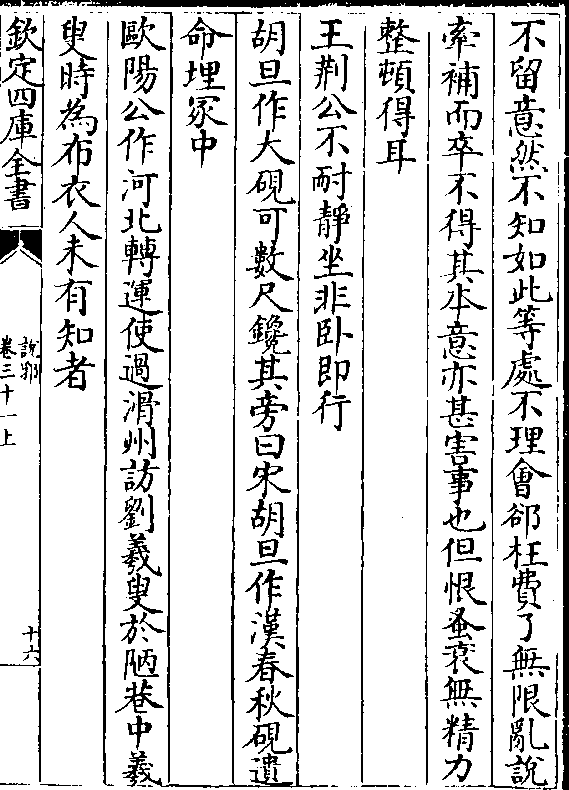 不留意然不知如此等處不理會郤枉費了無限亂說
牽補而卒不得其本意亦甚害事也但恨蚤衰無精力
整頓得耳
王荆公不耐靜坐非卧即行
胡旦作大硯可數尺鑱其旁曰宋胡旦作漢春秋硯遺
命埋冢中
歐陽公作河北轉運使過滑州訪劉羲叟於陋巷中羲
叟時為布衣人未有知者
欽定四庫全書
說郛
卷三十一上
十六